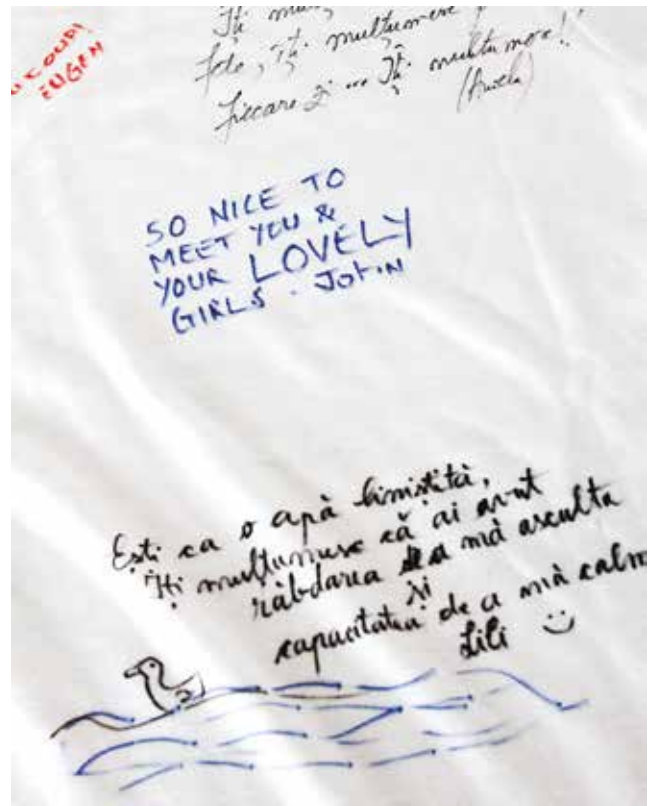 EUGEN
Îți
fete, Îți multumesc
fiecare zi ... Îți multumesc!!
SO NICE TO
MEET YOU &
YOUR LOVELY
GIRLS . JOHN
Ești ca o apă liniștită,
Îți mulțumesc că ai avut
răbdarea de a mă asculta
și
capacitatea de a mă calm
Lili